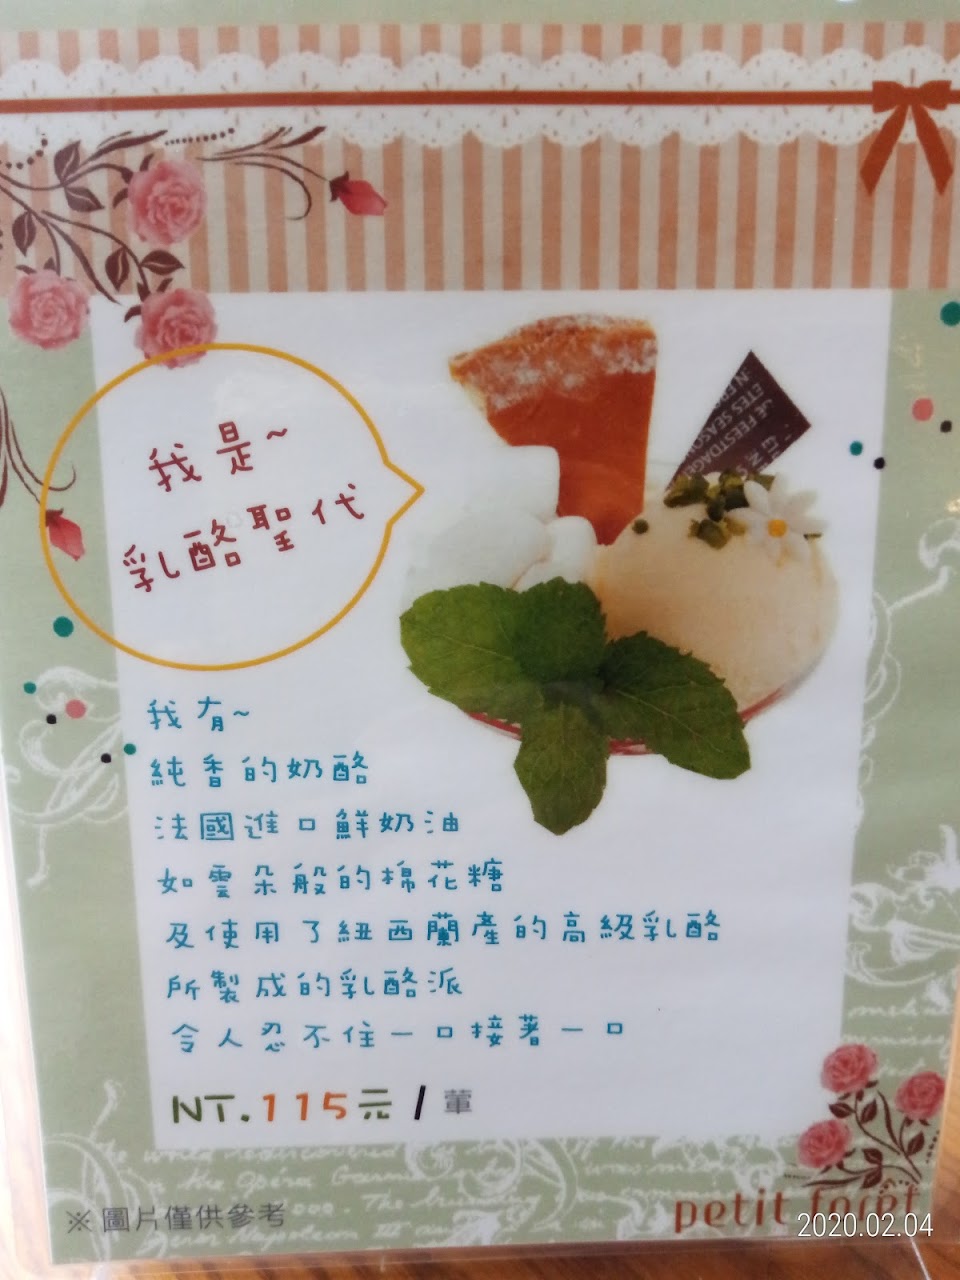 我是~
乳酪聖代
我有~
純香的奶酪
法國進口鮮奶油
如雲朵般的棉花糖
及使用了紐西蘭產的高級乳酪
所製成的乳酪派
令人忍不住一口接著一口
NT.115元 / 葷
※圖片僅供參考
petit foret
2020.02.04